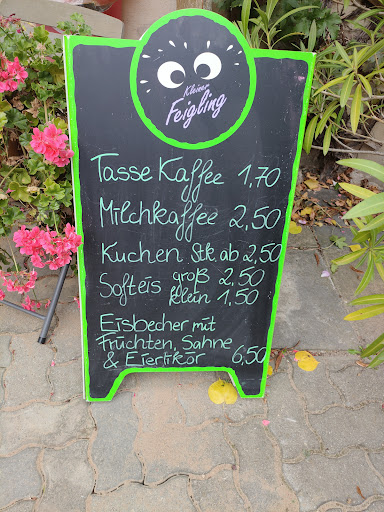 Kleiner
Feigling
Tasse Kaffee 1,70
Milchkaffee 2,50
Kuchen Stk. ab 2,50
Softeis groß 2,50
klein 1,50
Eisbecher mit
Früchten, Sahne
& Eierlikör 6,50